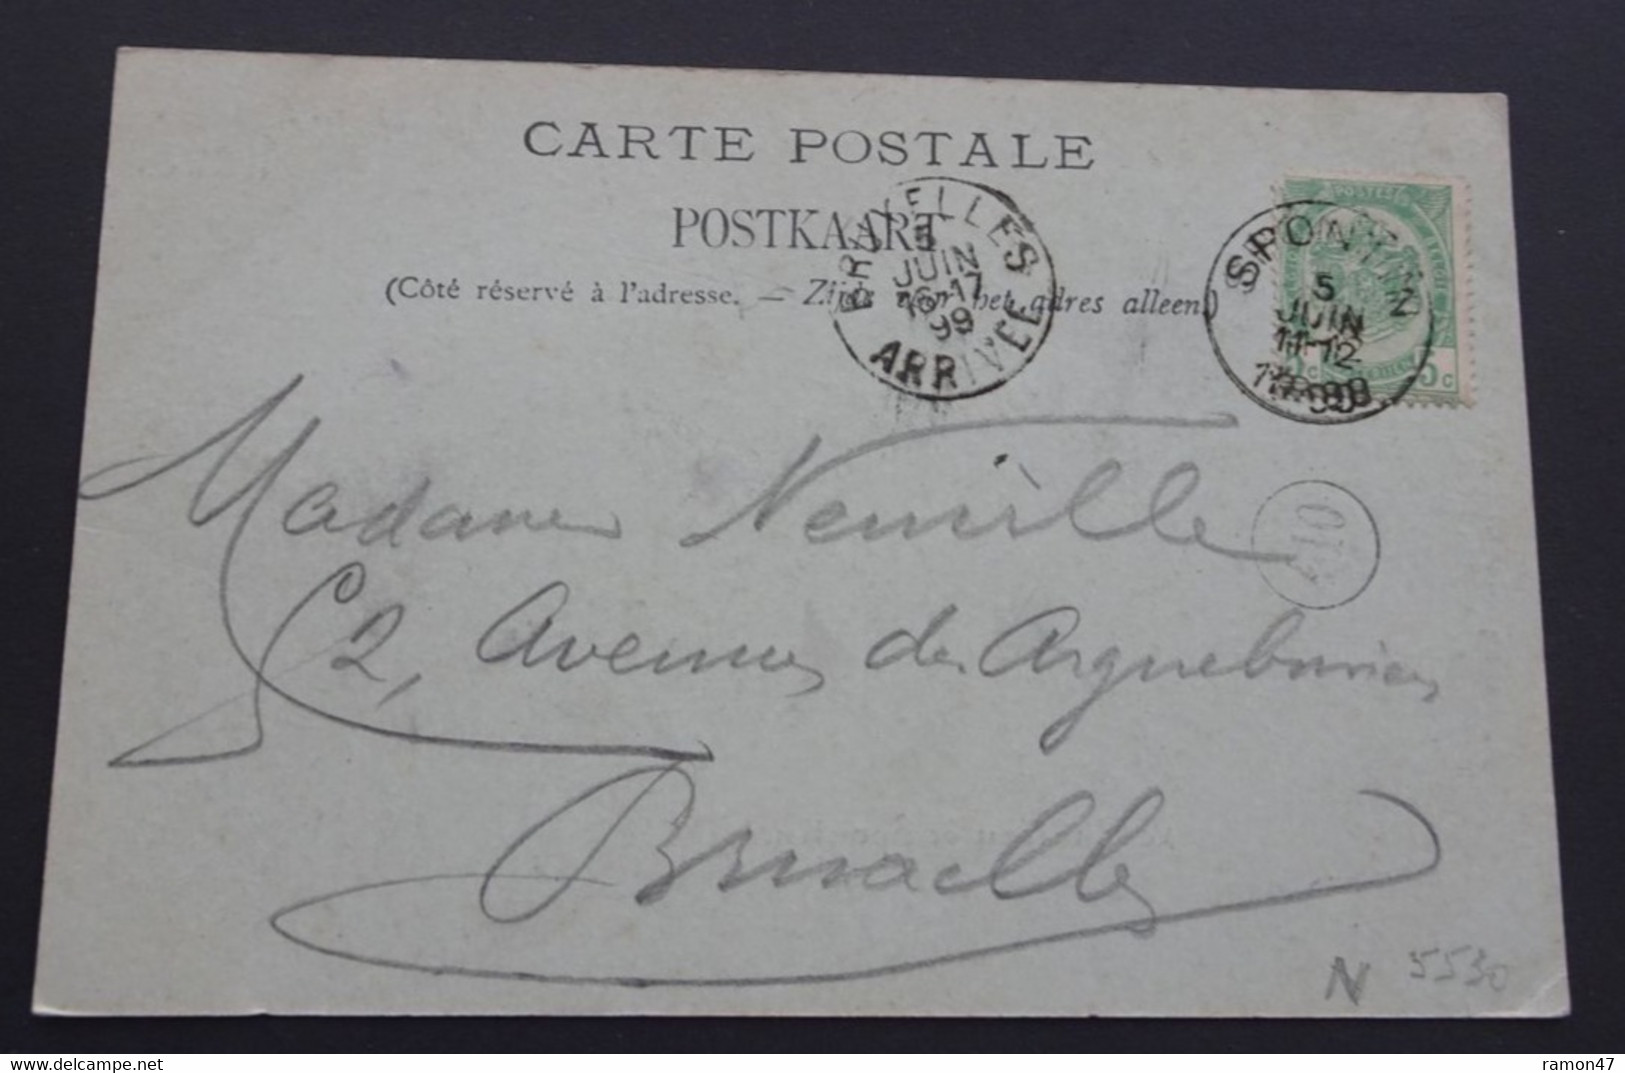 CARTE POSTALE
POSTKAART
(Côté réservé à l'adresse. — Zijde voor het adres alleen.)
BRUXELLES
5
JUIN
16-17
99
ARRIVEE
SPONTIN
5
JUIN
11-12
1899
POSTES
5c
110
Madame Neuville
62, Avenue des Arquebusiers
Bruxelles
N 5530
ramon47